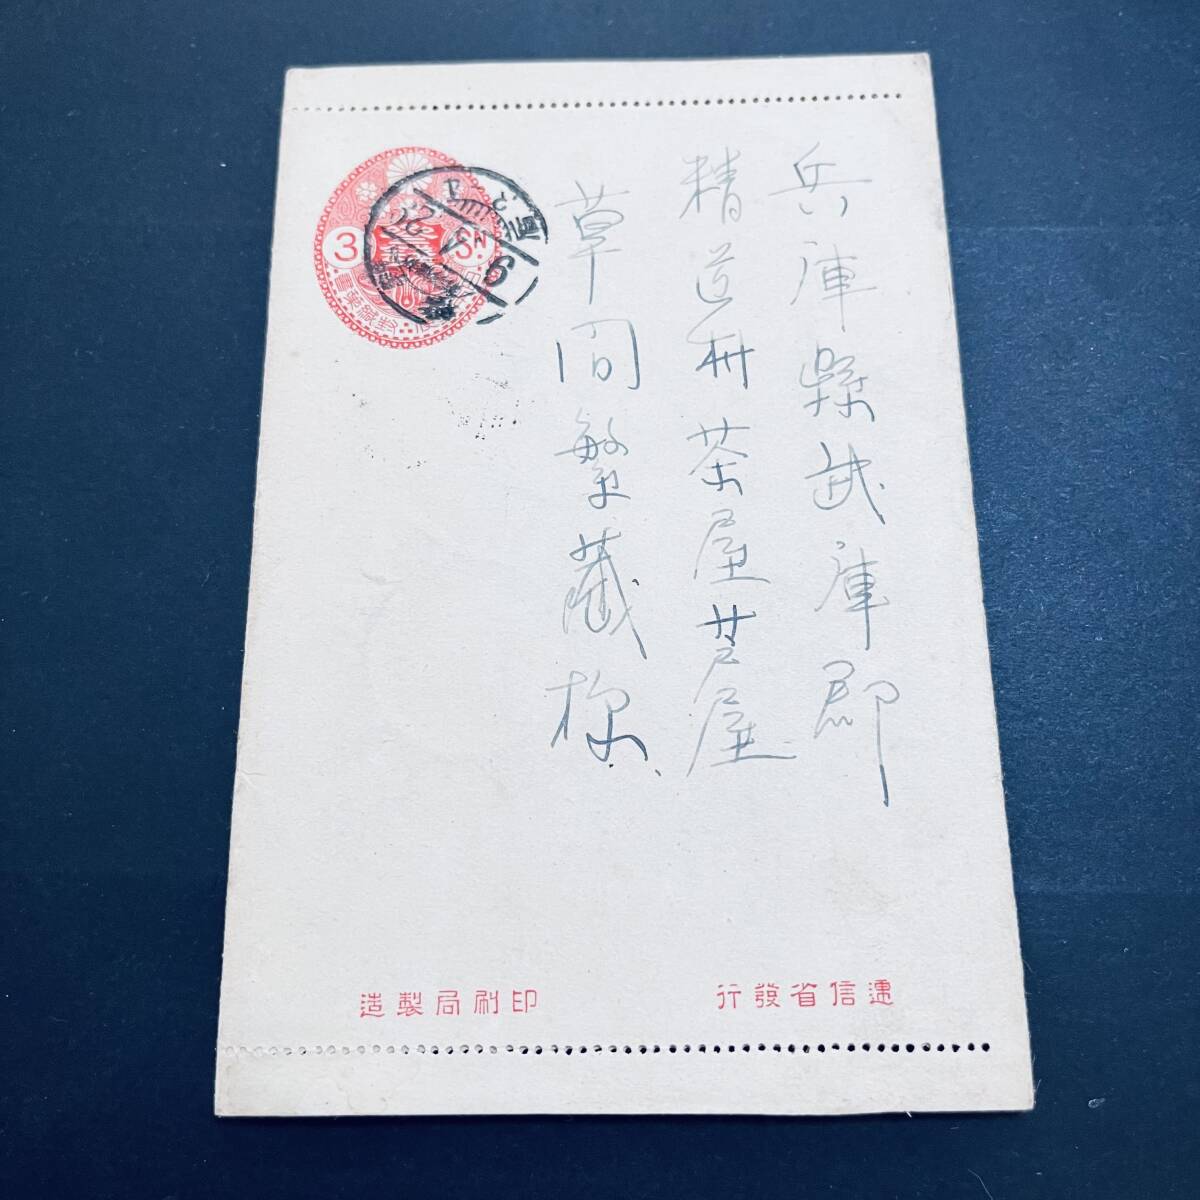 兵庫縣武庫郡
精道村茶屋芦屋
草間繁藏様
3
S.
逓信省發行
印刷局製造